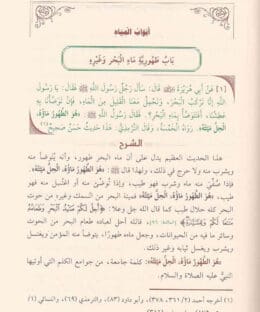 أبواب المياه
بَابُ طَهُورِيَّةِ مَاءِ الْبَحْرِ وَغَيْرِهِ
[١] عَنْ أَبِي هُرَيْرَةَ ﷺ قَالَ: سَأَلَ رَجُلٌ رَسُولَ اللَّهِ ﷺ فَقَالَ: يَا رَسُولَ
اللَّهِ إِنَّا نَرْكَبُ الْبَحْرَ، وَنَحْمِلُ مَعَنَا الْقَلِيلَ مِنَ الْمَاءِ، فَإِنْ تَوَضَّأْنَا بِهِ
عَطِشْنَا، أَفَنَتَوَضَّأُ بِمَاءِ الْبَحْرِ؟. فَقَالَ رَسُولُ اللَّهِ ﷺ: «هُوَ الطَّهُورُ مَاؤُهُ،
الْحِلُّ مَيْتَتُهُ». رَوَاهُ الْخَمْسَةُ، وَقَالَ التِّرْمِذِيُّ: هَذَا حَدِيثٌ حَسَنٌ صَحِيحٌ
الشرح
هذا الحديث العظيم يدل على أن ماء البحر طهور، وأنه يُتوضأ منه
ويشرب منه ولا حرج في ذلك، ولهذا قال ﷺ: «هُوَ الطَّهُورُ مَاؤُهُ، الْحِلُّ مَيْتَتُهُ»،
فإذا صُفِّي منه ماء وشرب فهو طيب، وإذا تُوضئ منه أو اغتسل منه فهو
طيب، «هُوَ الطَّهُورُ مَاؤُهُ، الْحِلُّ مَيْتَتُهُ» فميتة البحر من السمك وغيره من حوت
البحر كله حلال طيب كما قال الله جل وعلا: ﴿أُحِلَّ لَكُمْ صَيْدُ الْبَحْرِ وَطَعَامُهُ
مَتَاعًا لَكُمْ وَلِلسَّيَّارَةِ﴾ فالله أحل لعباده طعام البحر من الحوت
وسائر ما فيه من الحيوانات، وجعل ماءه طهورًا، يتوضأ منه المؤمن ويغتسل
ويشرب ويغسل ثيابه وغير ذلك.
«هُوَ الطَّهُورُ مَاؤُهُ، الْحِلُّ مَيْتَتُهُ» كلمة جامعة، من جوامع الكلم التي أوتيها
النبي عليه الصلاة والسلام.
(١) أخرجه أحمد (٢/ ٣٦١، ٣٧٨)، وأبو داود (٨٣)، والترمذي (٦٩)، والنسائي (١